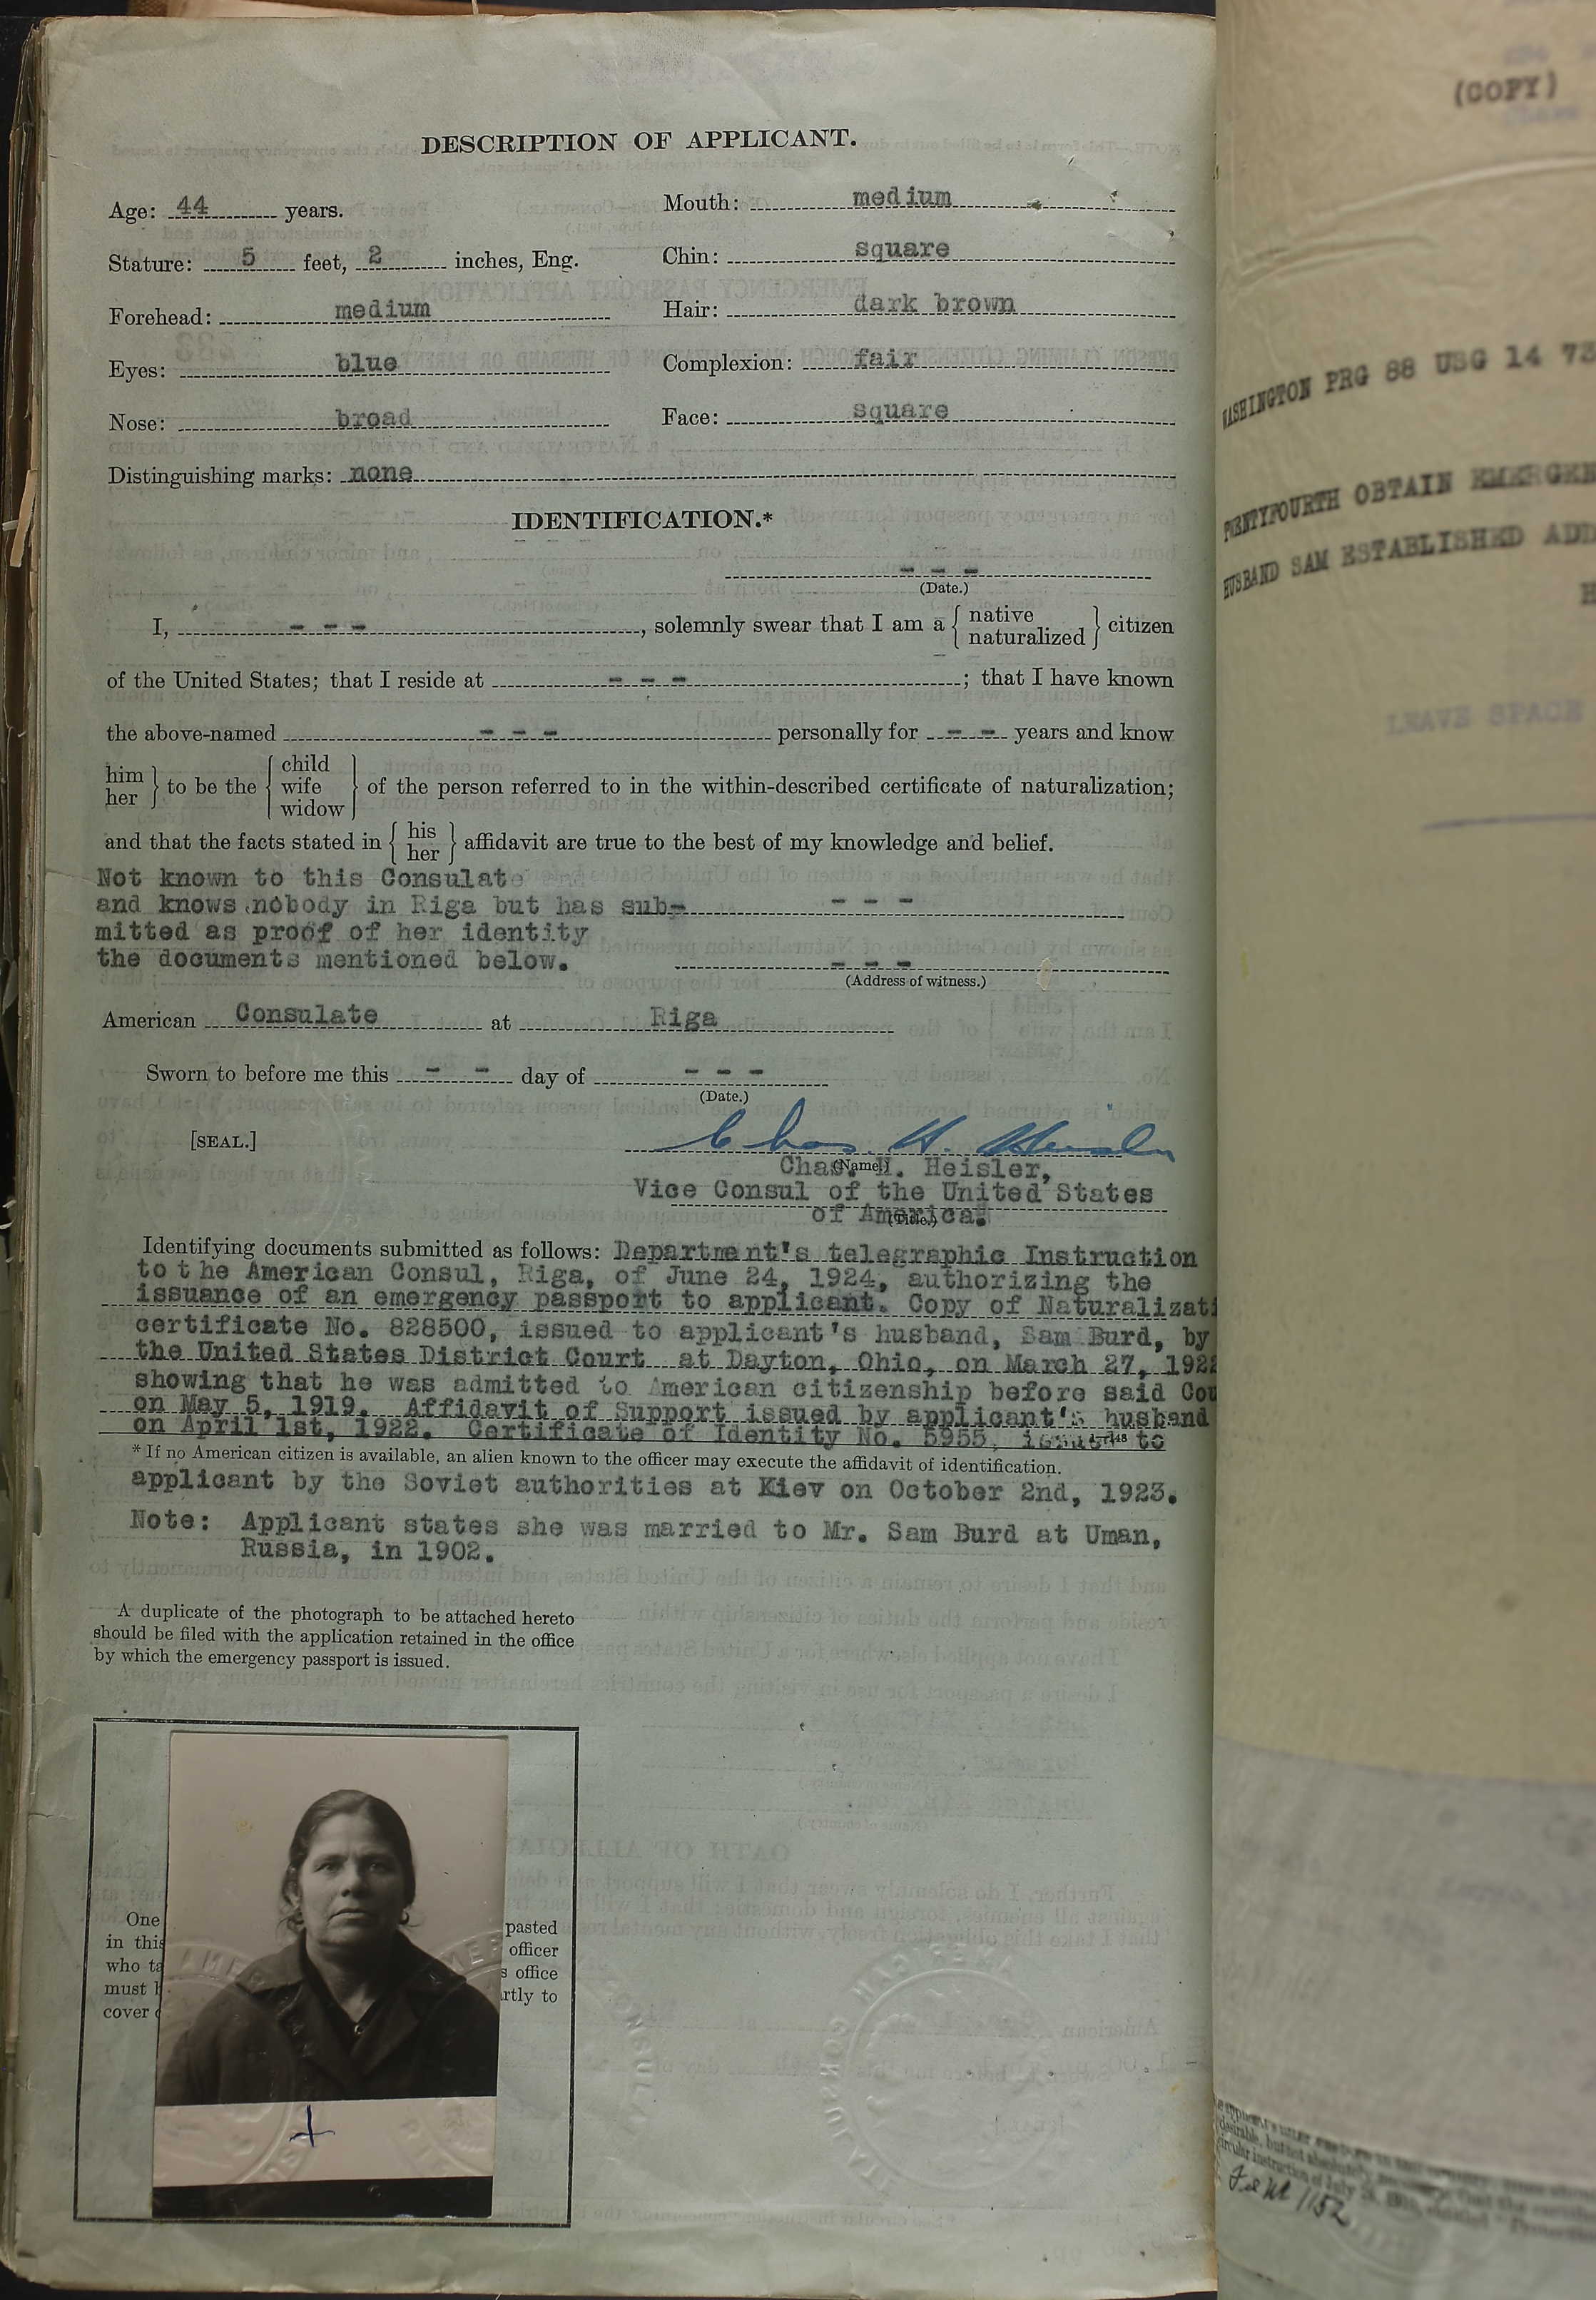 DESCRIPTION OF APPLICANT.
Age: 44 years.
Mouth: medium
Stature: 5 feet, 2 inches, Eng.
Chin: square
Forehead: medium
Hair: dark brown
Eyes: blue
Complexion: fair
Nose: broad
Face: square
Distinguishing marks: none
IDENTIFICATION.*
- - -
(Date.)
I, - - -, solemnly swear that I am a { native naturalized } citizen
of the United States; that I reside at - - -; that I have known
the above-named - - - personally for - - years and know
{ him her } to be the { child wife widow } of the person referred to in the within-described certificate of naturalization;
and that the facts stated in { his her } affidavit are true to the best of my knowledge and belief.
Not known to this Consulate
and knows nobody in Riga but has sub- - - -
mitted as proof of her identity
the documents mentioned below. - - -
(Address of witness.)
American Consulate at Riga
Sworn to before me this - - day of - - -
(Date.)
[SEAL.]
Chas. H. Heisler
(Name.)
Chas. H. Heisler,
Vice Consul of the United States
of America.
(Title.)
Identifying documents submitted as follows: Department's telegraphic Instruction
to t he American Consul, Riga, of June 24, 1924, authorizing the
issuance of an emergency passport to applicant. Copy of Naturalizati
certificate No. 828500, issued to applicant's husband, Sam Burd, by
the United States District Court at Dayton, Ohio, on March 27, 1922
showing that he was admitted to American citizenship before said Cou
on May 5, 1919. Affidavit of Support issued by applicant's husband
on April 1st, 1922. Certificate of Identity No. 5955, issued to
* If no American citizen is available, an alien known to the officer may execute the affidavit of identification.
applicant by the Soviet authorities at Kiev on October 2nd, 1923.
Note: Applicant states she was married to Mr. Sam Burd at Uman,
Russia, in 1902.
A duplicate of the photograph to be attached hereto
should be filed with the application retained in the office
by which the emergency passport is issued.
One pasted
in this officer
who ta s office
must rtly to
cover
(COPY)
WASHINGTON PRG 88 USG 14 73
OBTAIN EMERGEN
HUSBAND SAM ESTABLISHED ADD
LEAVE SPACE